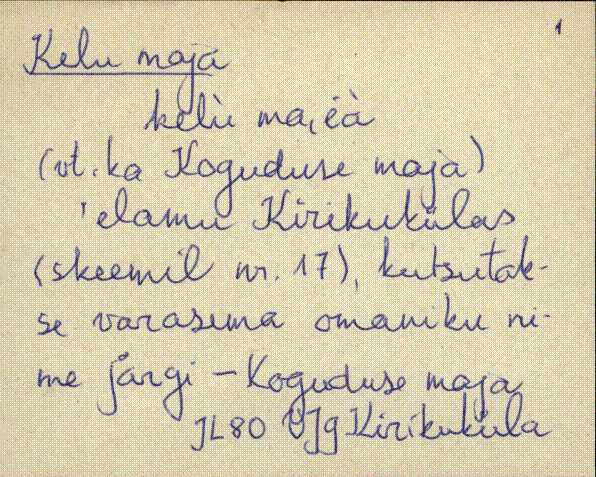 1
Kelu maja
kelù ma,èà
(vt. ka Koguduse maja)
'elamu Kirikukülas
(skeemil nr. 17), kutsutak-
se varasema omaniku ni-
me järgi – Koguduse maja
JL80 VJg Kirikuküla